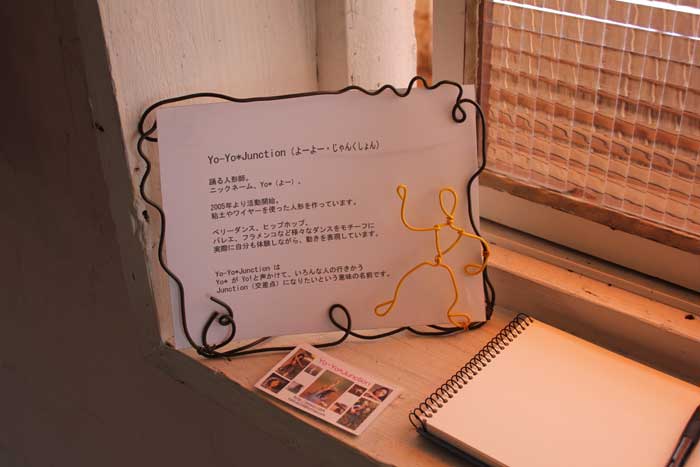 Yo-Yo*Junction (よーよー・じゃんくしょん)
踊る人形師。
ニックネーム、Yo* (よー) 。
2005年より活動開始。
粘土やワイヤーを使った人形を作っています。
ベリーダンス、ヒップホップ、
バレエ、フラメンコなど様々なダンスをモチーフに
実際に自分も体験しながら、動きを表現しています。
Yo-Yo*Junction は
Yo* が Yo!と声かけて、いろんな人の行きかう
Junction (交差点) になりたいという意味の名前です。
Yo-Yo*Junction